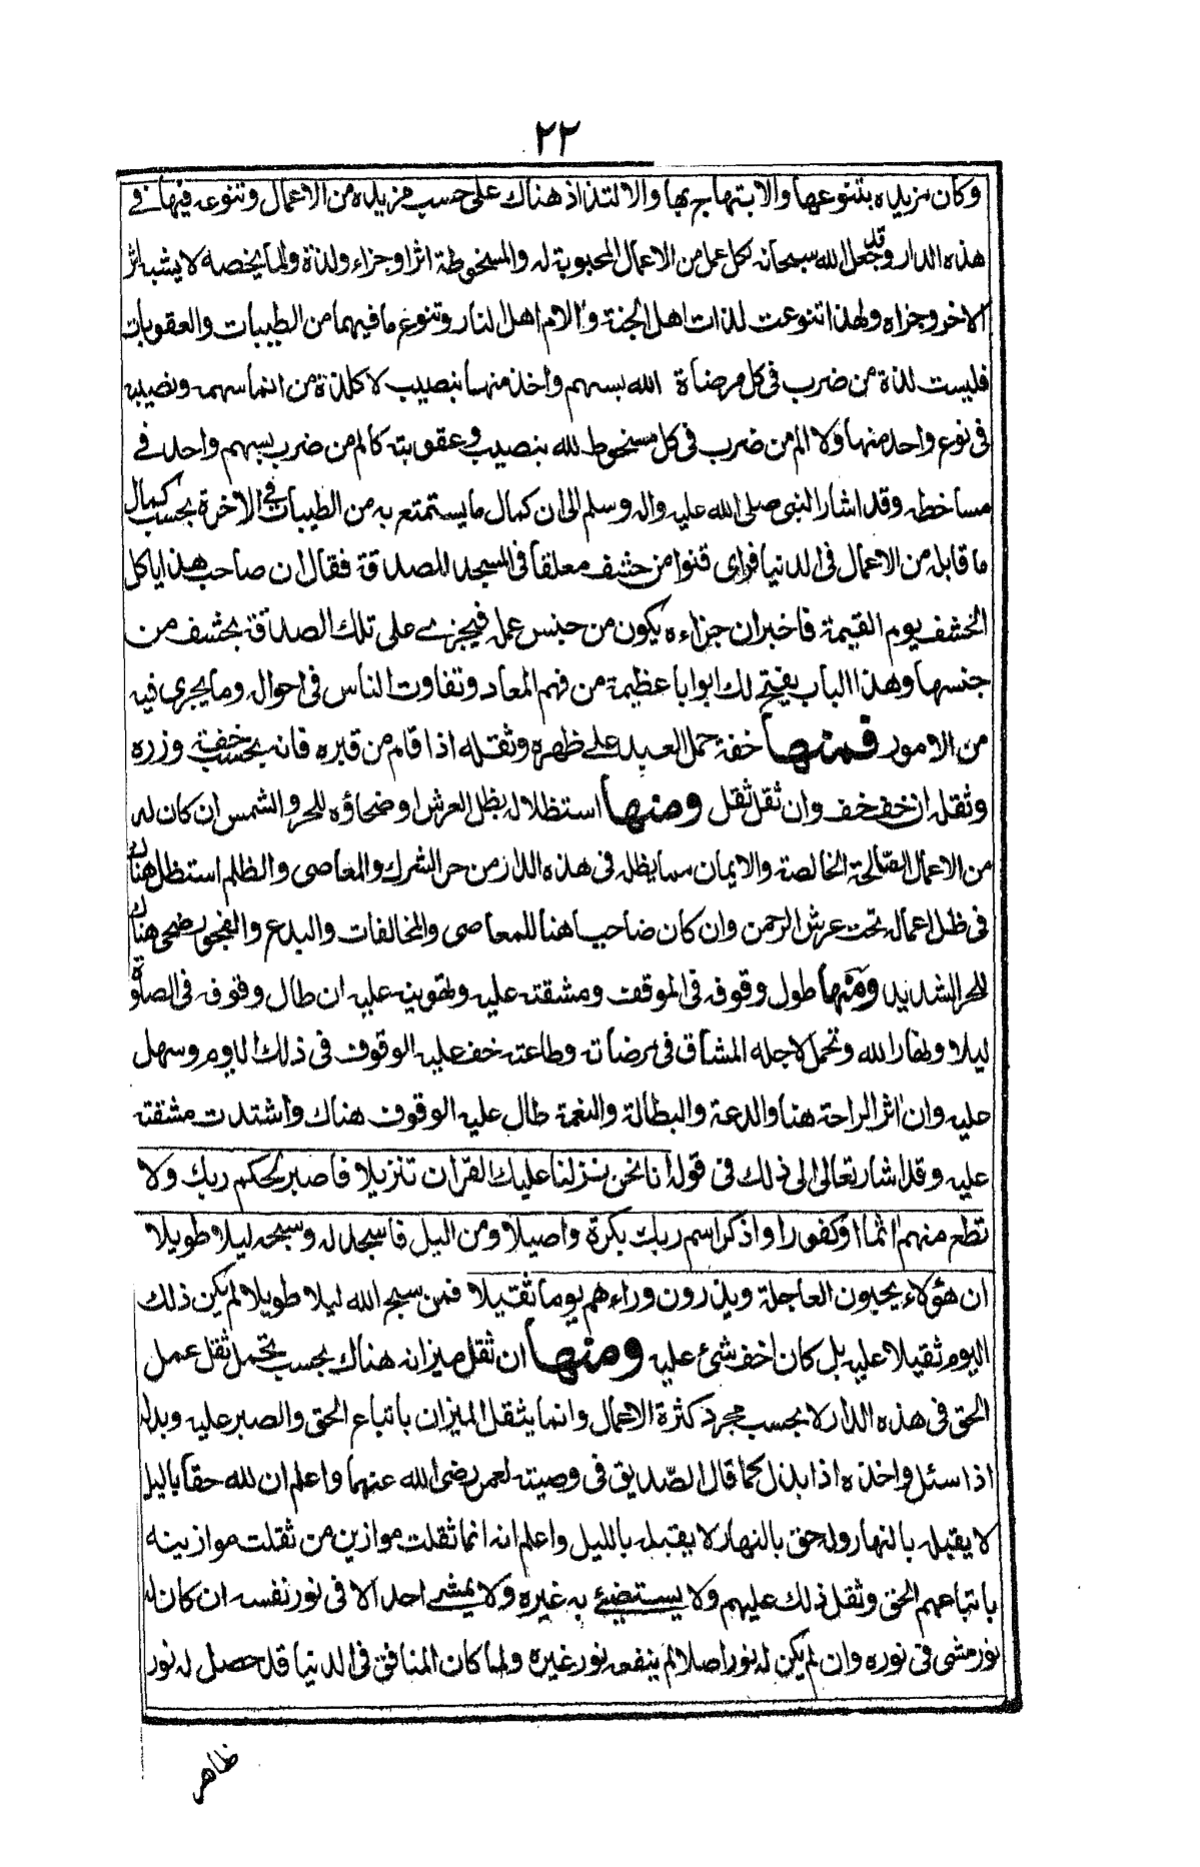 ٢٢
وكان مزيده بتنوعها والابتهاج بها والالتذاذ هناك على حسب مزيده من الاعمال وتنوعه فيها في
هذه الدار وقد جعل الله سبحانه لكل عمل من الاعمال المحبوبة له والمسخوطة اثرا وجزاء ولذة والما يخصه لا يشبه اثر
الاخر وجزاه ولهذا تنوعت لذات اهل الجنة وآلام اهل النار وتنوع ما فيهما من الطيبات والعقوبات
فليست لذة من ضرب في كل مرضاة الله بسهم واخذ منها بنصيب لا كلذة من انما سهمه ونصيبه
في نوع واحد منها ولا الم من ضرب في كل مسخوط لله بنصيب وعقوبته كالم من ضرب بسهم واحد في
مساخطه وقد اشار النبى صلى الله عليه واله وسلم الى ان كمال ما يستمتع به من الطيبات في الاخرة بحسب كمال
ما قابله من الاعمال فى الدنيا فراى قنوا من حشف معلقا فى المسجد للصدقة فقال ان صاحب هذا ياكل
الحشف يوم القيمة فاخبر ان جزاءه يكون من جنس عمله فيجزى على تلك الصدقة بحشف من
جنسها وهذا الباب يفتح لك ابوابا عظيمة من فهم المعاد وتفاوت الناس فى احواله وما يجرى فيه
من الامور فمنها خفة حمل العبد على ظهره وثقله اذا قام من قبره فانه بحسب خفة وزره
وثقله ان خف خف وان ثقل ثقل ومنها استظلاله بظل العرش او ضحاؤه للحر والشمس ان كان له
من الاعمال الصالحة الخالصة والايمان ما يظله فى هذه الدار من حر الشرك والمعاصى والظلم استظل هناك
فى ظل اعماله تحت عرش الرحمن وان كان ضاحيا هنا للمعاصى والمخالفات والبدع والفجور ضحى هناك
للحر الشديد ومنها طول وقوفه فى الموقف ومشقته عليه وتهوينه عليه ان طال وقوفه فى الصلوة
ليلا ونهارا لله وتحمل لاجله المشاق فى مرضاته وطاعته خف عليه الوقوف فى ذلك اليوم وسهل
عليه وان اثر الراحة هنا والدعة والبطالة والنعمة طال عليه الوقوف هناك واشتدت مشقته
عليه وقد اشار تعالى الى ذلك فى قوله انا نحن نزلنا عليك القرآن تنزيلا فاصبر لحكم ربك ولا
تطع منهم اثما او كفورا واذكر اسم ربك بكرة واصيلا ومن اليل فاسجد له وسبحه ليلا طويلا
ان هؤلاء يحبون العاجلة ويذرون وراءهم يوما ثقيلا فمن سبح الله ليلا طويلا لم يكن ذلك
اليوم ثقيلا عليه بل كان اخف شئ عليه ومنها ان ثقل ميزانه هناك بحسب تحمل ثقل عمل
الحق فى هذه الدار لا بحسب مجرد كثرة الاعمال وانما يثقل الميزان باتباع الحق والصبر عليه وبذله
اذا سئل واخذه اذا بذل كما قال الصديق فى وصيته لعمر رضى الله عنهما واعلم ان لله حقا باليل
لا يقبله بالنهار وله حق بالنهار لا يقبله بالليل واعلم انه انما ثقلت موازين من ثقلت موازينه
باتباعهم الحق وثقل ذلك عليهم ولا يستضئ به غيره ولا يمشى احد الا فى نور نفسه ان كان له
نور مشى فى نوره وان لم يكن له نور اصلا لم ينفعه نور غيره ولما كان المنافق فى الدنيا قد حصل له نور
ظاهر